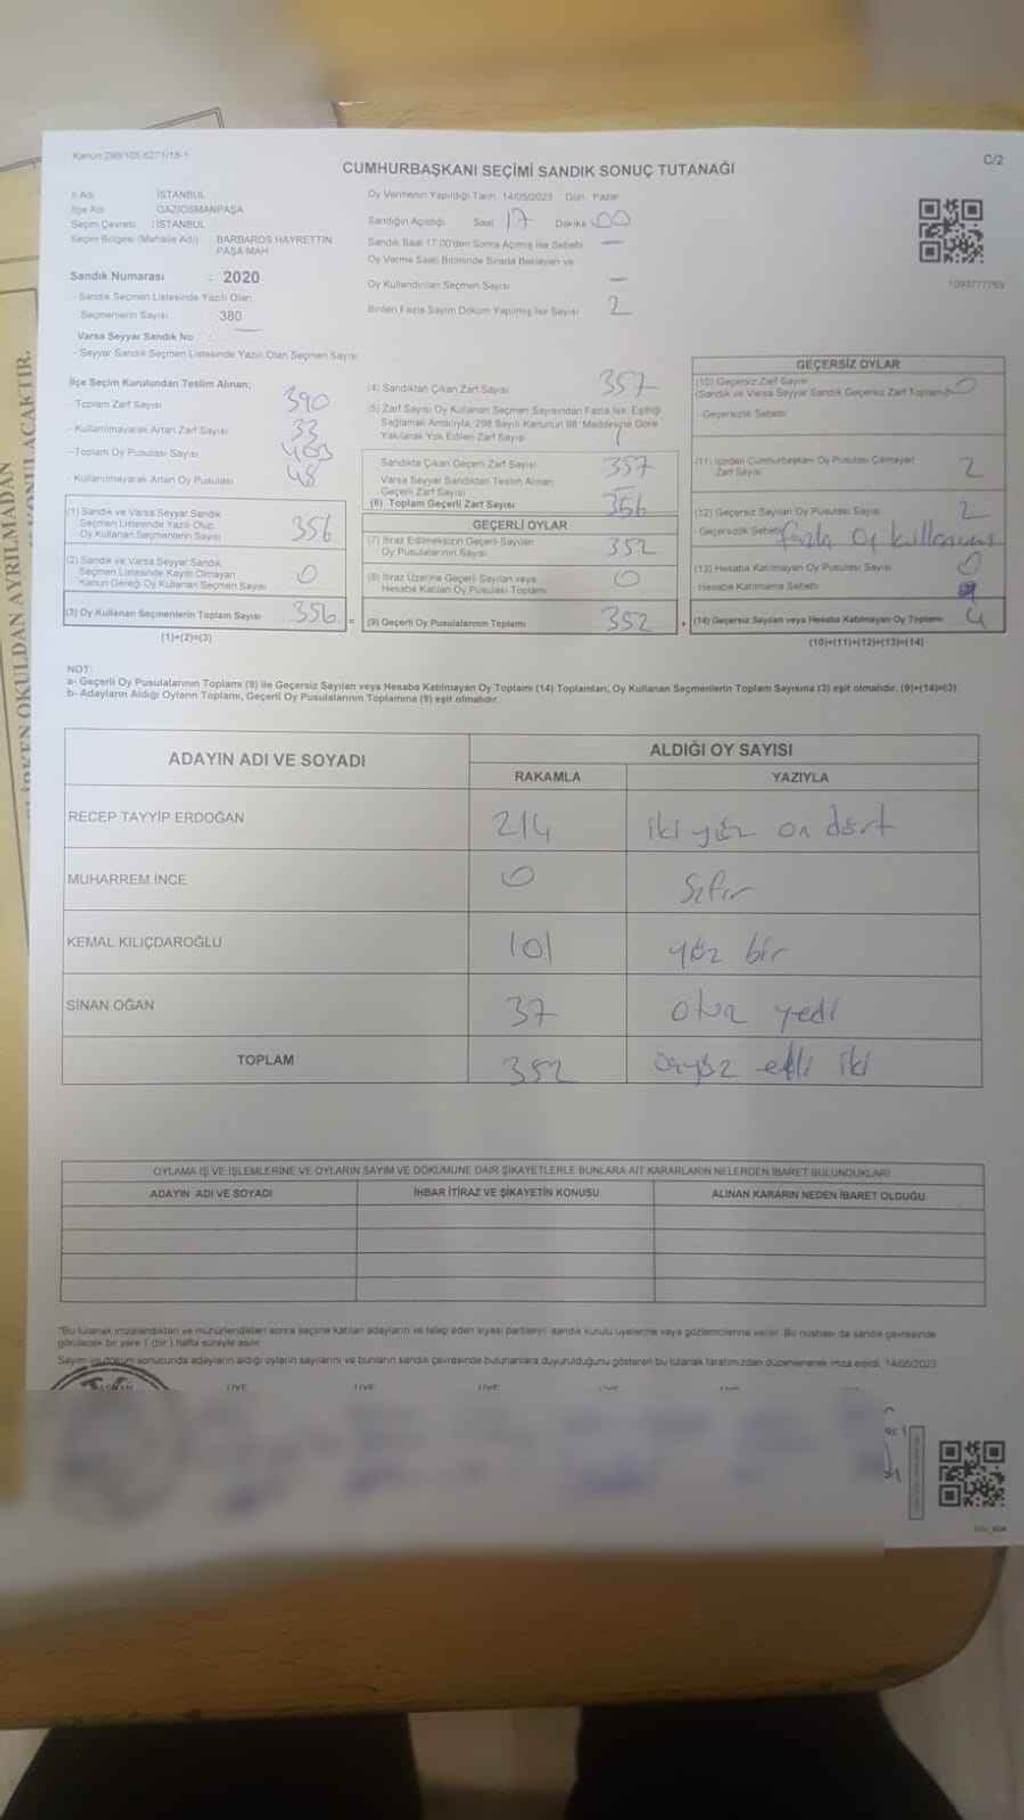 Kanun 298/105-6271/18-1
CUMHURBAŞKANI SEÇİMİ SANDIK SONUÇ TUTANAĞI
C/2
İl Adı İSTANBUL
İlçe Adı GAZİOSMANPAŞA
Seçim Çevresi : İSTANBUL
Seçim Bölgesi (Mahalle Adı) BARBAROS HAYRETTİN
PAŞA MAH
Sandık Numarası : 2020
- Sandık Seçmen Listesinde Yazılı Olan
Seçmenlerin Sayısı 380
Varsa Seyyar Sandık No
- Seyyar Sandık Seçmen Listesinde Yazılı Olan Seçmen Sayısı
Oy Vermenin Yapıldığı Tarih: 14/05/2023 Gün: Pazar
Sandığın Açıldığı Saat 17 Dakika 00
Sandık Saat 17:00'den Sonra Açılmış İse Sebebi —
Oy Verme Saati Bitiminde Sırada Bekleyen ve
Oy Kullandırılan Seçmen Sayısı —
Birden Fazla Sayım Döküm Yapılmış İse Sayısı 2
İlçe Seçim Kurulundan Teslim Alınan;
- Toplam Zarf Sayısı 390
- Kullanılmayarak Artan Zarf Sayısı 33
- Toplam Oy Pusulası Sayısı 403
- Kullanılmayarak Artan Oy Pusulası 48
(1) Sandık ve Varsa Seyyar Sandık
Seçmen Listesinde Yazılı Olup
Oy Kullanan Seçmenlerin Sayısı 356
(2) Sandık ve Varsa Seyyar Sandık
Seçmen Listesinde Kayıtlı Olmayan
Kanun Gereği Oy Kullanan Seçmen Sayısı 0
(3) Oy Kullanan Seçmenlerin Toplam Sayısı 356 =
(1)+(2)=(3)
(4) Sandıktan Çıkan Zarf Sayısı 357
(5) Zarf Sayısı Oy Kullanan Seçmen Sayısından Fazla İse, Eşitliği
Sağlamak Amacıyla, 298 Sayılı Kanunun 98. Maddesine Göre
Yakılarak Yok Edilen Zarf Sayısı 1
Sandıkta Çıkan Geçerli Zarf Sayısı 357
Varsa Seyyar Sandıktan Teslim Alınan
Geçerli Zarf Sayısı —
(6) Toplam Geçerli Zarf Sayısı 356
GEÇERLİ OYLAR
(7) İtiraz Edilmeksizin Geçerli Sayılan
Oy Pusulalarının Sayısı 352
(8) İtiraz Üzerine Geçerli Sayılan veya
Hesaba Katılan Oy Pusulası Toplamı 0
(9) Geçerli Oy Pusulalarının Toplamı 352 +
GEÇERSİZ OYLAR
(10) Geçersiz Zarf Sayısı
(Sandık ve Varsa Seyyar Sandık Geçersiz Zarf Toplamı) 0
- Geçersizlik Sebebi
(11) İçinden Cumhurbaşkanı Oy Pusulası Çıkmayan
Zarf Sayısı 2
(12) Geçersiz Sayılan Oy Pusulası Sayısı 2
- Geçersizlik Sebebi fazla oy kullanımı
(13) Hesaba Katılmayan Oy Pusulası Sayısı 0
Hesaba Katılmama Sebebi
(14) Geçersiz Sayılan veya Hesaba Katılmayan Oy Toplamı 4
(10)+(11)+(12)+(13)=(14)
NOT:
a- Geçerli Oy Pusulalarının Toplamı (9) ile Geçersiz Sayılan veya Hesaba Katılmayan Oy Toplamı (14) Toplamları, Oy Kullanan Seçmenlerin Toplam Sayısına (3) eşit olmalıdır. (9)+(14)=(3)
b- Adayların Aldığı Oyların Toplamı, Geçerli Oy Pusulalarının Toplamına (9) eşit olmalıdır.
ADAYIN ADI VE SOYADI
ALDIĞI OY SAYISI
RAKAMLA YAZIYLA
RECEP TAYYİP ERDOĞAN 214 iki yüz on dört
MUHARREM İNCE 0 Sıfır
KEMAL KILIÇDAROĞLU 101 yüz bir
SİNAN OĞAN 37 otuz yedi
TOPLAM 352 üçyüz elli iki
OYLAMA İŞ VE İŞLEMLERİNE VE OYLARIN SAYIM VE DÖKÜMÜNE DAİR ŞİKAYETLERLE BUNLARA AİT KARARLARIN NELERDEN İBARET BULUNDUKLARI
ADAYIN ADI VE SOYADI İHBAR İTİRAZ VE ŞİKAYETİN KONUSU ALINAN KARARIN NEDEN İBARET OLDUĞU
*Bu tutanak imzalandıktan ve mühürlendikten sonra seçime katılan adayların ve talep eden siyasi partilerin sandık kurulu üyelerine veya gözlemcilerine verilir. Bu nüshası da sandık çevresinde
görülecek bir yere 1 (bir) hafta süreyle asılır.
Sayım ve döküm sonucunda adayların aldığı oyların sayılarını ve bunların sandık çevresinde bulunanlara duyurulduğunu gösteren bu tutanak tarafımızdan düzenlenerek imza edildi. 14/05/2023